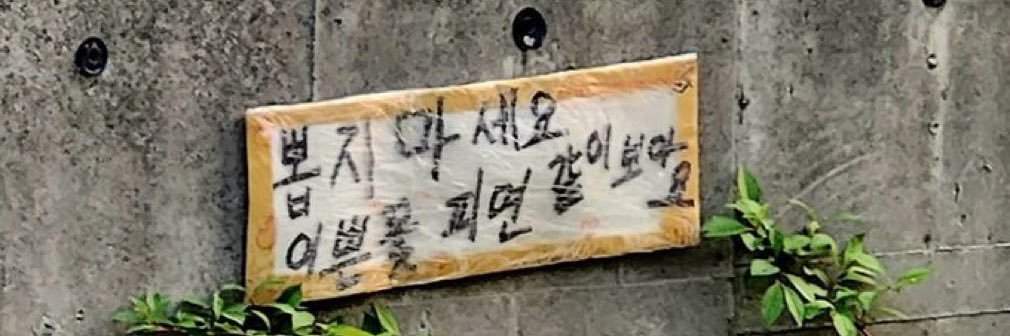 뽑지 마세요
이쁜꽃 피면 같이보아요